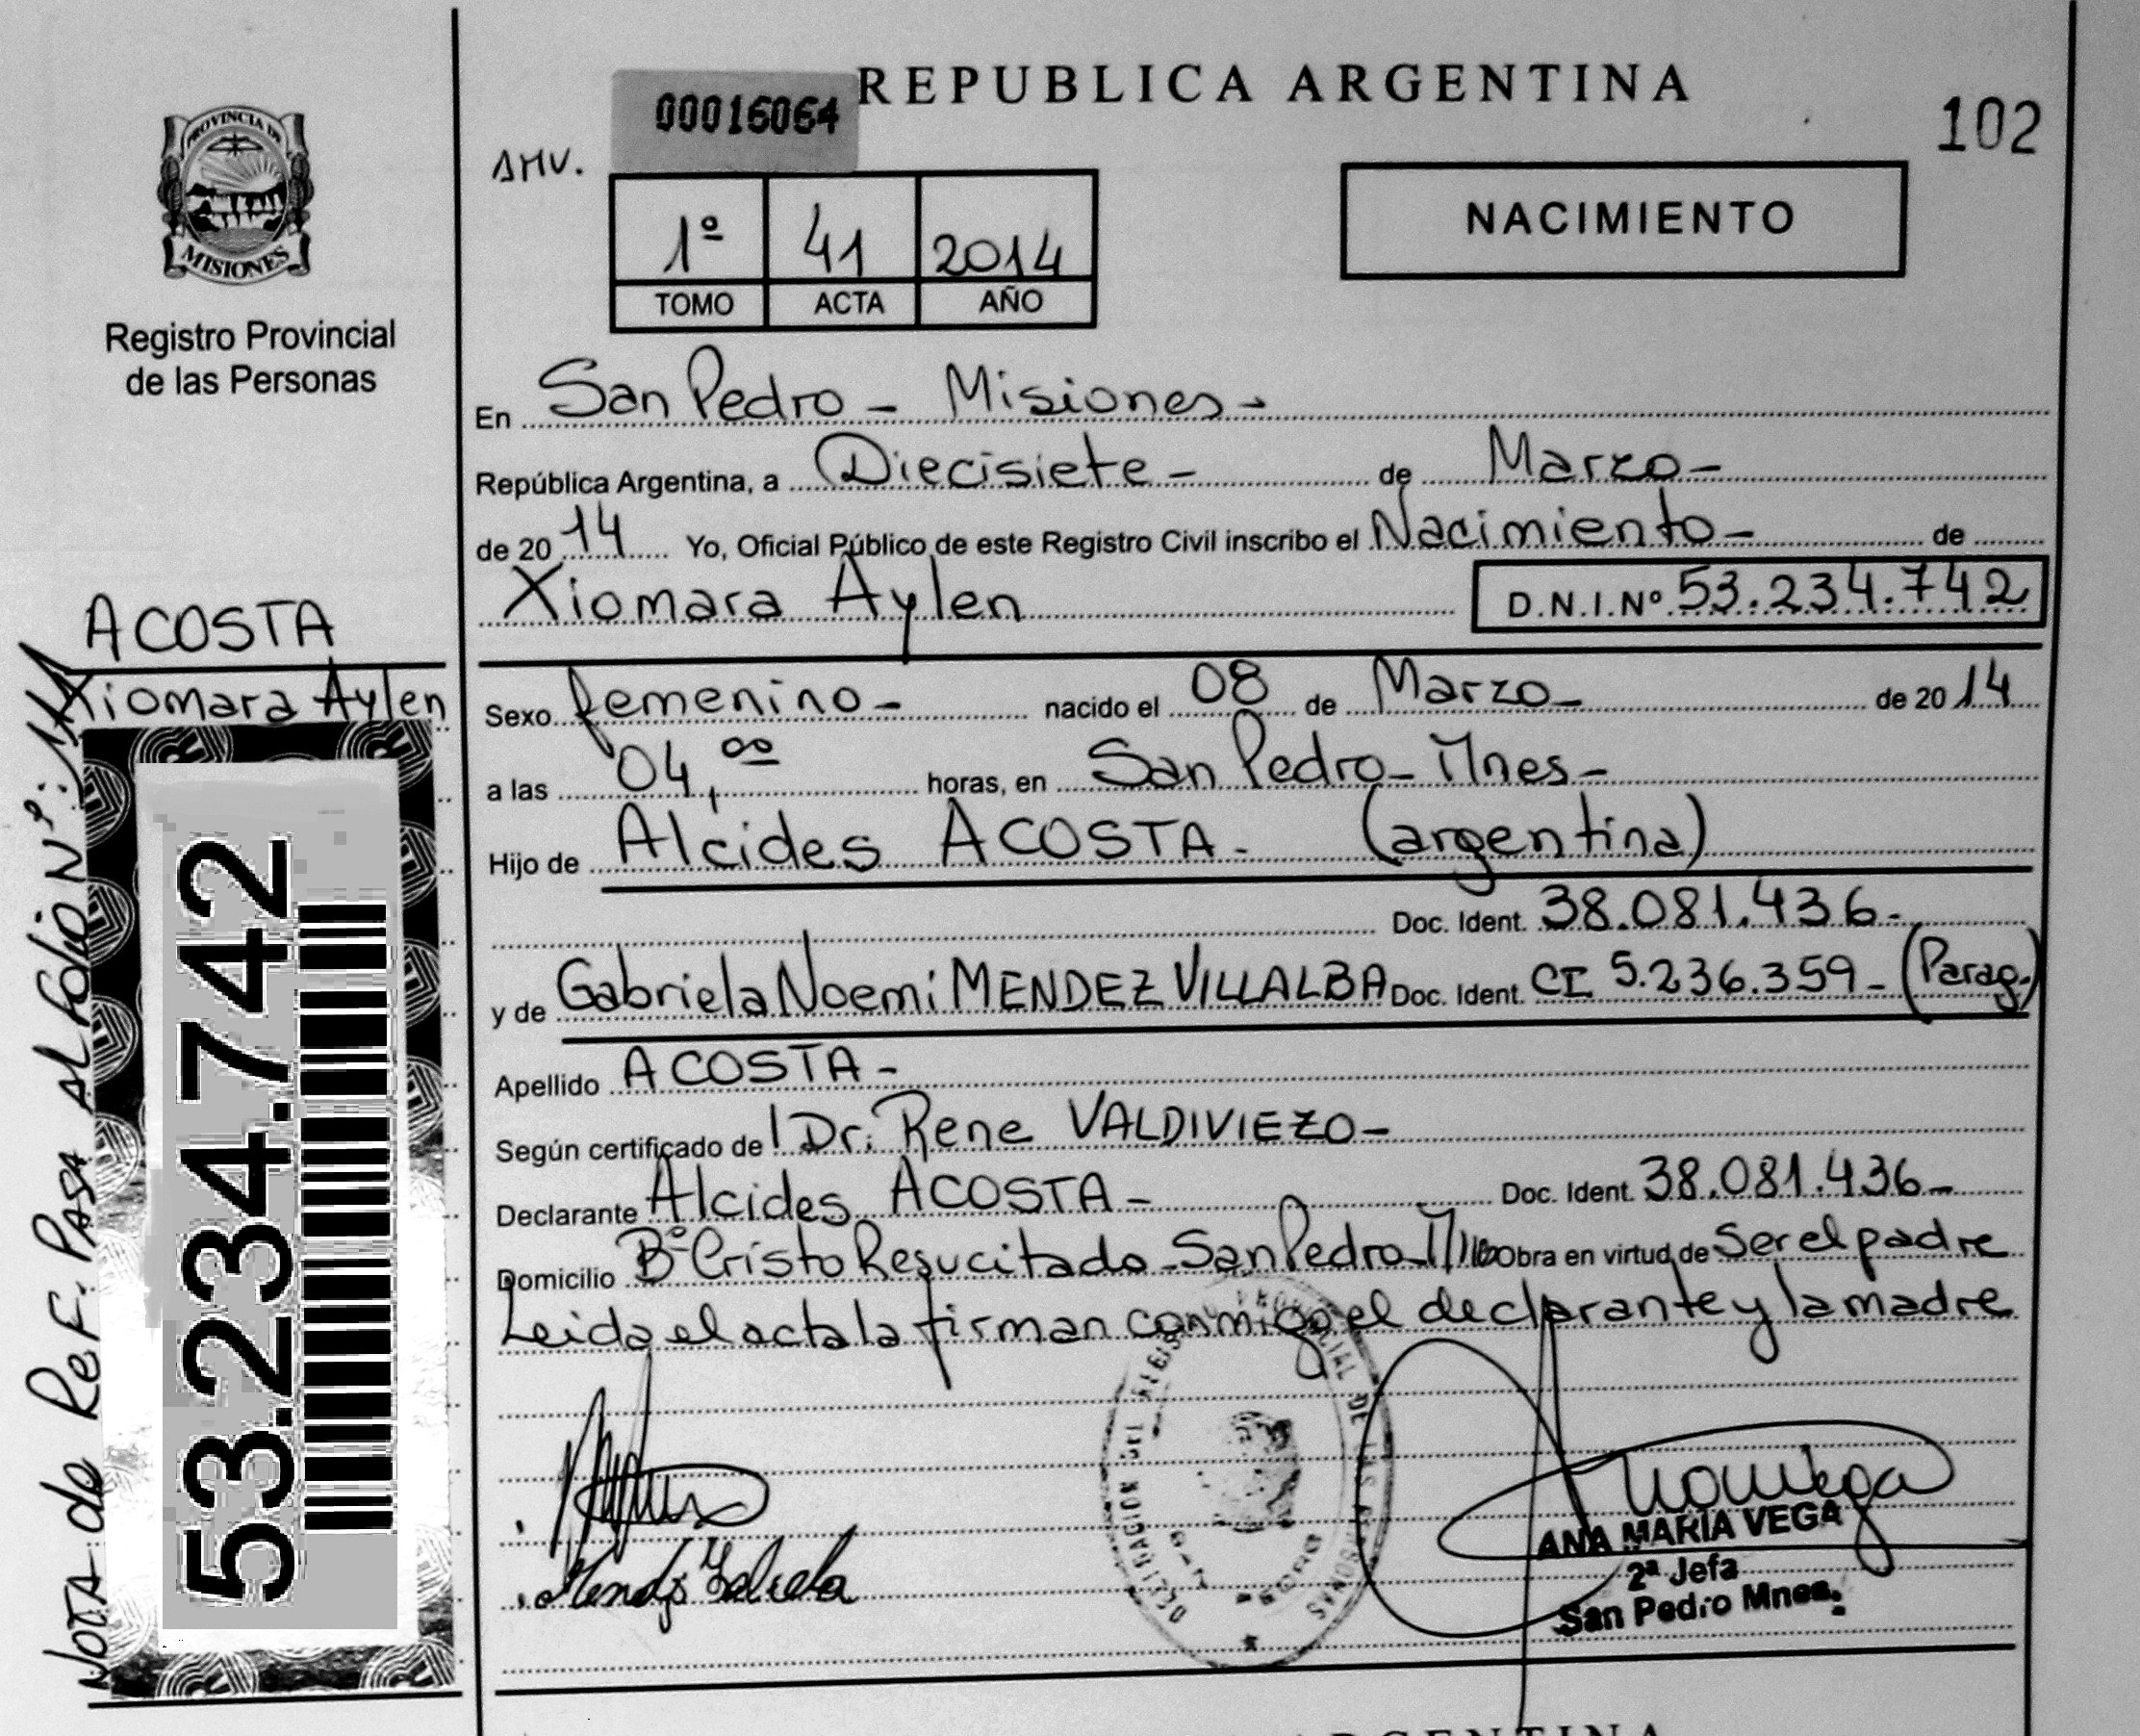 REPUBLICA ARGENTINA
00016064
102
AMV.
PROVINCIA DE
MISIONES
Registro Provincial
de las Personas
1º 41 2014
TOMO ACTA AÑO
NACIMIENTO
En San Pedro - Misiones -
República Argentina, a Diecisiete - de Marzo -
de 2014 Yo, Oficial Público de este Registro Civil inscribo el Nacimiento - de
Xiomara Aylen D.N.I.Nº 53.234.742
ACOSTA
Xiomara Aylen
Sexo femenino - nacido el 08 de Marzo - de 2014
a las 04,00 horas, en San Pedro - Mnes -
Hijo de Alcides ACOSTA - (argentina)
Doc. Ident. 38.081.436 -
y de Gabriela Noemi MENDEZ VILLALBA Doc. Ident. CI 5.236.359 - (Parag.)
Apellido ACOSTA -
Según certificado de Dr. Rene VALDIVIEZO -
Declarante Alcides ACOSTA - Doc. Ident. 38.081.436 -
Domicilio Bº Cristo Resucitado - San Pedro - Obra en virtud de Ser el padre
Leida el acta la firman conmigo el declarante y la madre
53.234.742
Nota de Ref. Pasa al folio Nº:
PROVINCIAL DE LAS PERSONAS
ANA MARIA VEGA
2ª Jefa
San Pedro Mnes.
ARGENTINA